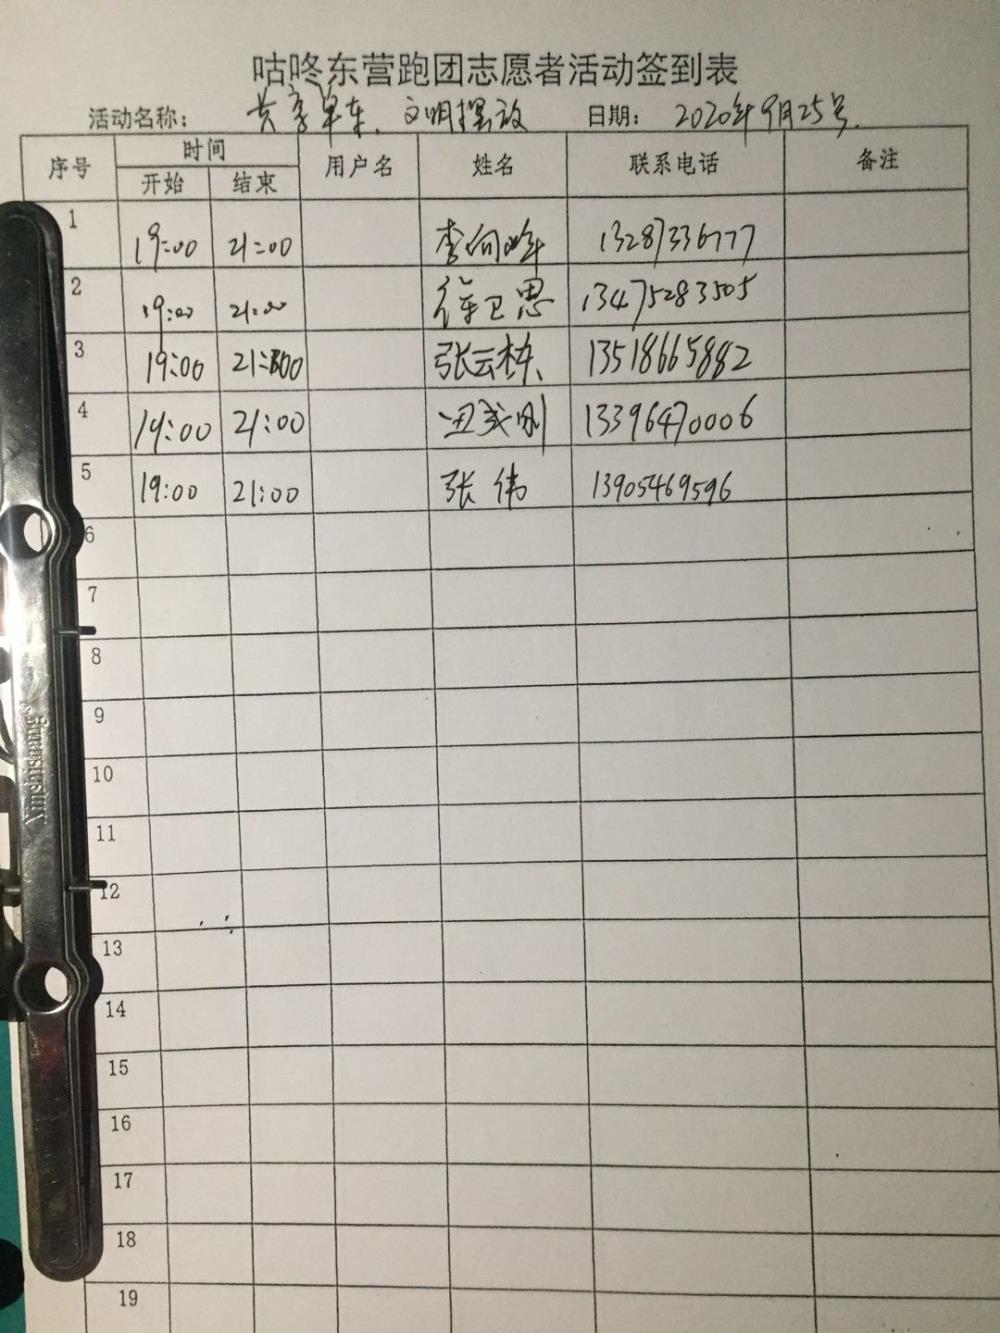 咕咚东营跑团志愿者活动签到表
活动名称: 共享单车、文明摆放 日期: 2020年9月25号.
序号 时间 用户名 姓名 联系电话 备注
开始 结束
1 19:00 21:00 李向峰 13287336777
2 19:00 21:00 徐卫恩 13475283505
3 19:00 21:00 张云栋 13518665882
4 19:00 21:00 刚 13396470006
5 19:00 21:00 张伟 13905469596
6
7
8
9
10
11
12
13
14
15
16
17
18
19
Xinshishuang